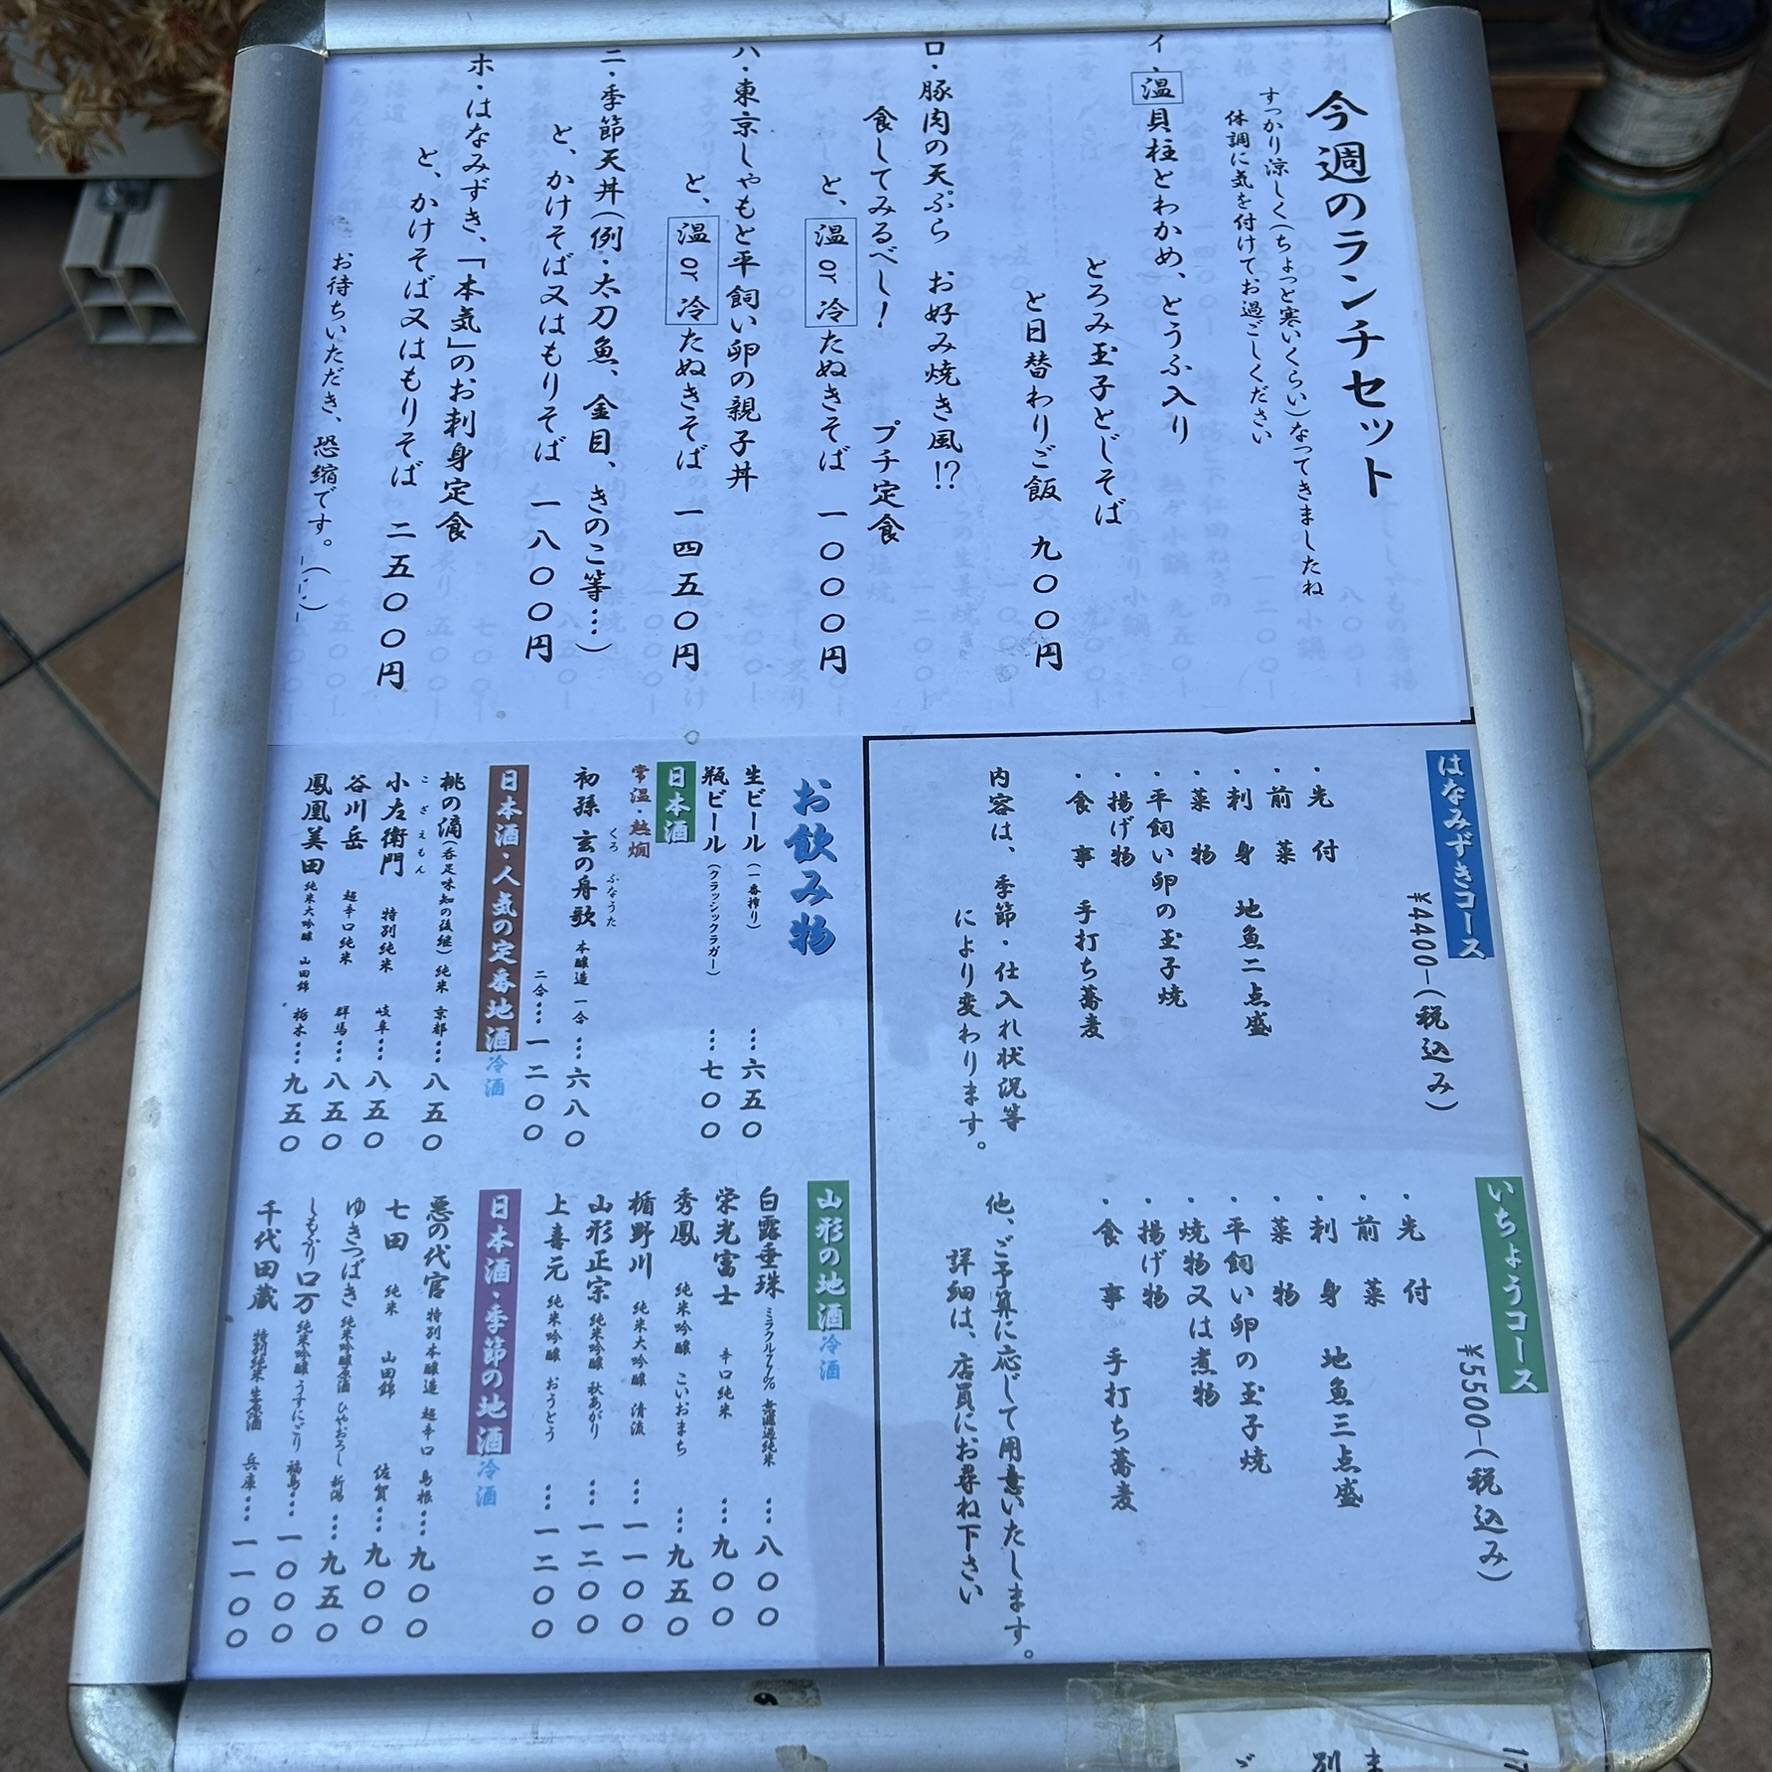 今週のランチセット
すっかり涼しく(ちょっと寒いくらい)なってきましたね
体調に気を付けてお過ごしください
イ・温 貝柱とわかめ、とうふ入り
とろみ玉子とじそば
と日替わりご飯 九〇〇円
ロ・豚肉の天ぷら お好み焼き風!?
食してみるべし! プチ定食
と、温 or 冷 たぬきそば 一〇〇〇円
ハ・東京しゃもと平飼い卵の親子丼
と、温 or 冷 たぬきそば 一四五〇円
ニ・季節天丼(例・太刀魚、金目、きのこ等…)
と、かけそば又はもりそば 一八〇〇円
ホ・はなみずき、「本気」のお刺身定食
と、かけそば又はもりそば 二五〇〇円
お待ちいただき、恐縮です。
はなみずきコース
¥4400-(税込み)
・先 付
・前 菜
・刺 身 地魚二点盛
・菜 物
・平飼い卵の玉子焼
・揚げ物
・食 事 手打ち蕎麦
内容は、季節・仕入れ状況等
により変わります。
いちょうコース
¥5500-(税込み)
・先 付
・前 菜
・刺 身 地魚三点盛
・菜 物
・平飼い卵の玉子焼
・焼物又は煮物
・揚げ物
・食 事 手打ち蕎麦
他、ご予算に応じて用意いたします。
詳細は、店員にお尋ね下さい
お飲み物
生ビール(一番搾り) …六五〇
瓶ビール(クラッシックラガー) …七〇〇
日本酒
常温・熱燗
初孫 玄の舟歌 本醸造 一合…六八〇
くろ ふなうた
二合…一二〇〇
日本酒・人気の定番地酒 冷酒
桃の滴(呑足味知の後継)純米 京都…八五〇
小左衛門 特別純米 岐阜…八五〇
こざえもん
谷川岳 超辛口純米 群馬…八五〇
鳳凰美田 純米大吟醸 山田錦 栃木…九五〇
山形の地酒 冷酒
白露垂珠 ミラクル77% 無濾過純米 …八〇〇
栄光冨士 辛口純米 …九〇〇
秀鳳 純米吟醸 こいおまち …九五〇
楯野川 純米大吟醸 清流 …一一〇〇
山形正宗 純米吟醸 秋あがり …一二〇〇
上喜元 純米吟醸 おうとう …一二〇〇
日本酒・季節の地酒 冷酒
悪の代官 特別本醸造 超辛口 島根…九〇〇
七田 純米 山田錦 佐賀…九〇〇
ゆきつばき 純米吟醸原酒 ひやおろし 新潟…九五〇
しもふり ロ万 純米吟醸 うすにごり 福島…一〇〇〇
千代田蔵 特別純米 生原酒 兵庫…一一〇〇